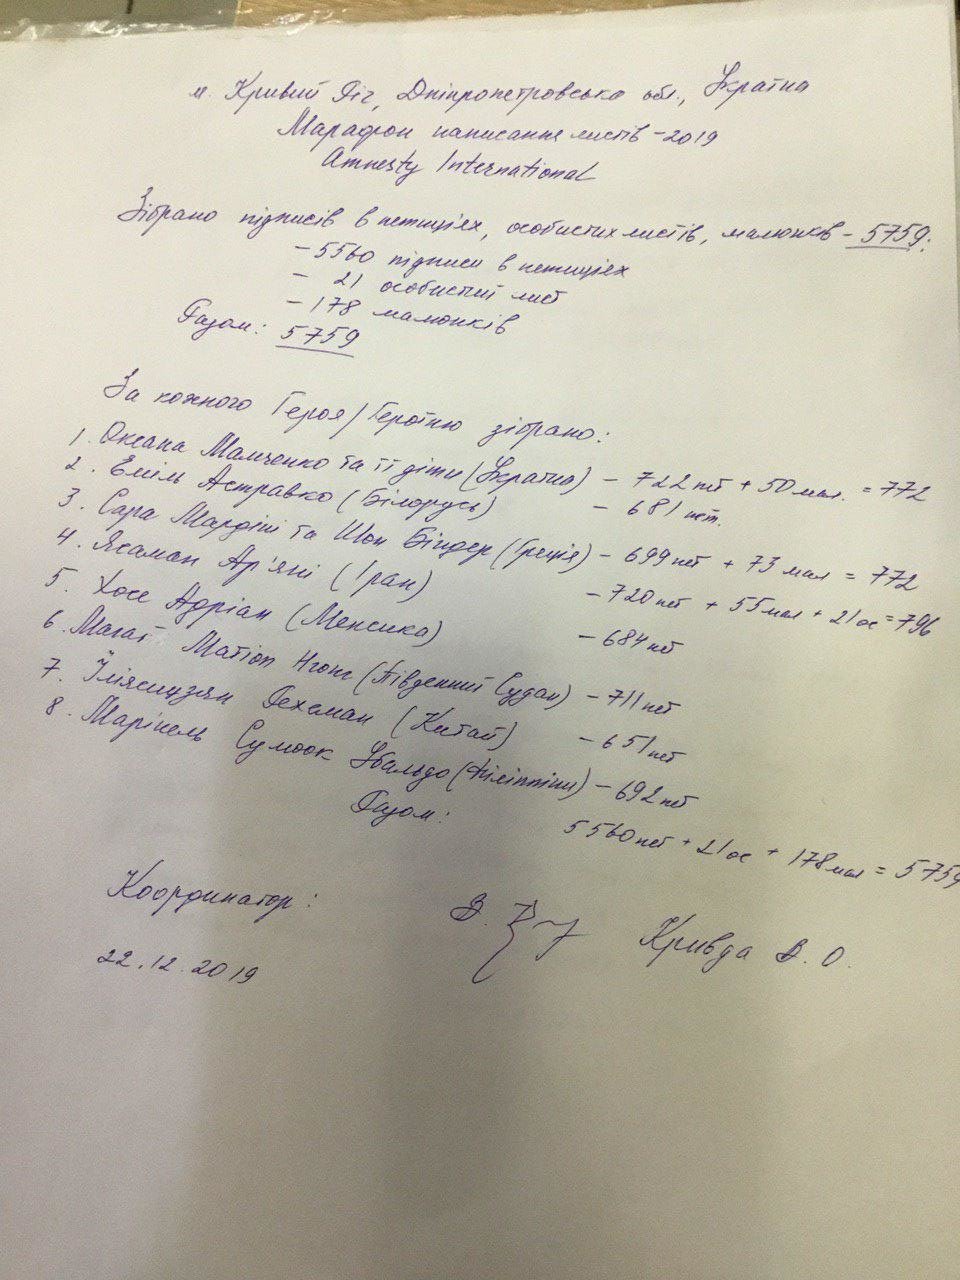 м. Кривий Ріг, Дніпропетровська обл., Україна
Марафон написання листів - 2019
Amnesty International
Зібрано підписів в петиціях, особистих листів, малюнків - 5759:
- 5560 підписи в петиціях
- 21 особистий лист
- 178 малюнків
Разом: 5759
За кожного Героя/Героїню зібрано:
1. Оксана Мамченко та її діти (Україна) - 722 пет + 50 мал. = 772
2. Еміль Астравко (Білорусь) - 681 пет.
3. Сара Мардіні та Шон Біндер (Греція) - 699 пет + 73 мал = 772
4. Ясаман Ар'яні (Іран) - 720 пет + 55 мал + 21 ос = 796
5. Хосе Адріан (Мексика) - 684 пет
6. Магаї Матіоп Нгонг (Південний Судан) - 711 пет
7. Їліяснузян Рехеман (Китай) - 651 пет
8. Марінель Сумоок Убальдо (Філіппіни) - 692 пет
Разом: 5560 пет + 21 ос + 178 мал = 5759
Координатор: Кривда В. О.
22.12.2019